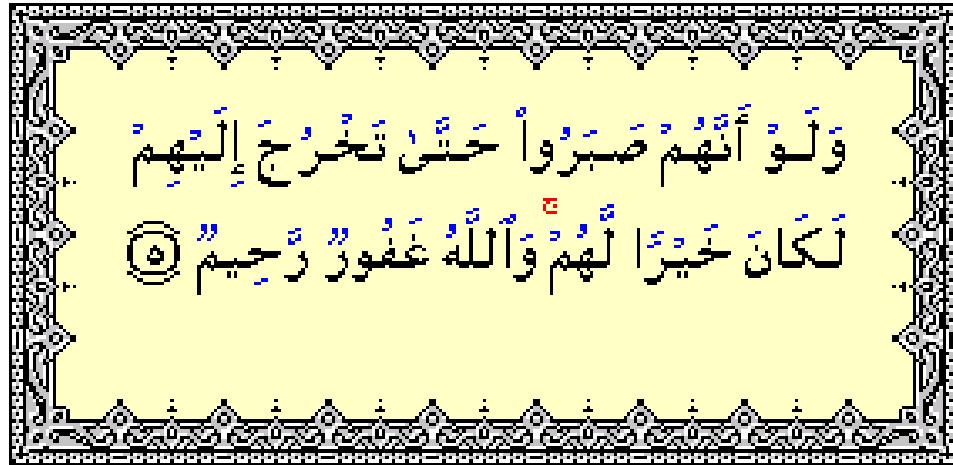 وَلَوْ أَنَّهُمْ صَبَرُوا۟ حَتَّىٰ تَخْرُجَ إِلَيْهِمْ
لَكَانَ خَيْرًا لَّهُمْ ۚ وَٱللَّهُ غَفُورٌ رَّحِيمٌ ۝٥